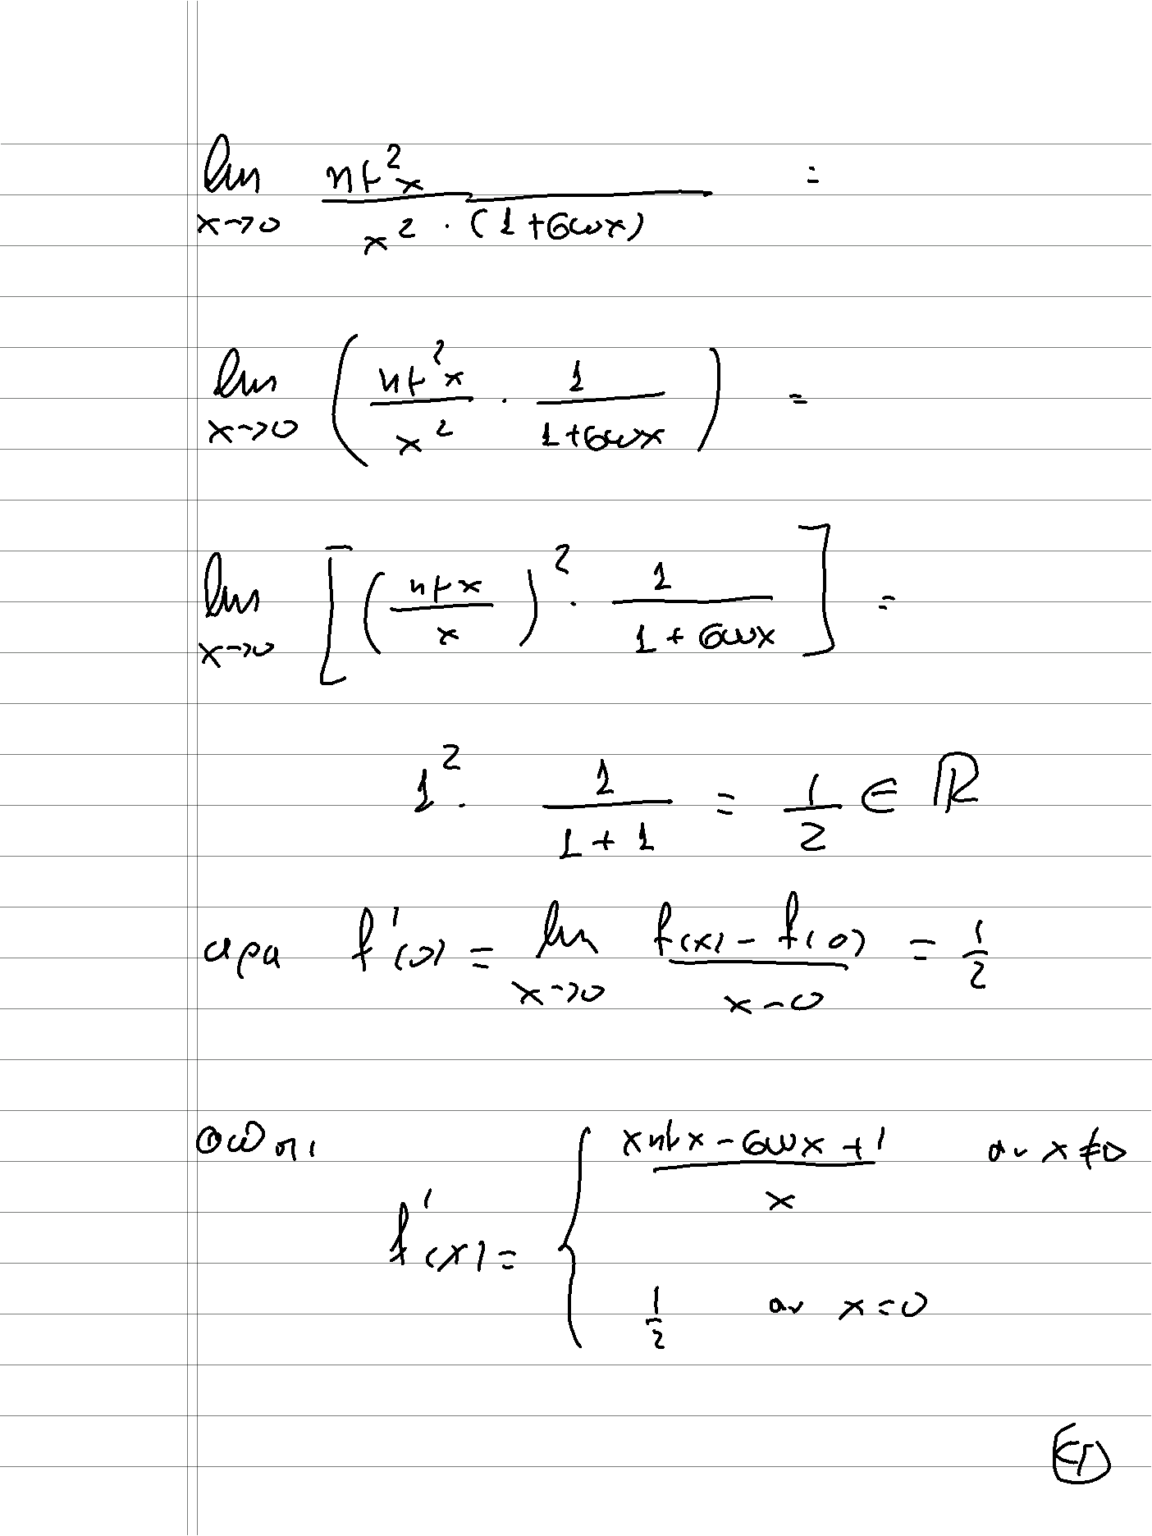 lim x→0 ημ²x / x² · (1+συνx) =
lim x→0 ( ημ²x / x² · 1 / 1+συνx ) =
lim x→0 [ ( ημx / x )² · 1 / 1+συνx ] =
1² · 1 / 1+1 = 1/2 ∈ ℝ
αρα f'(0) = lim x→0 f(x) - f(0) / x-0 = 1/2
f'(x) = { xημx - συνx + 1 / x αν x≠0
1/2 αν x=0